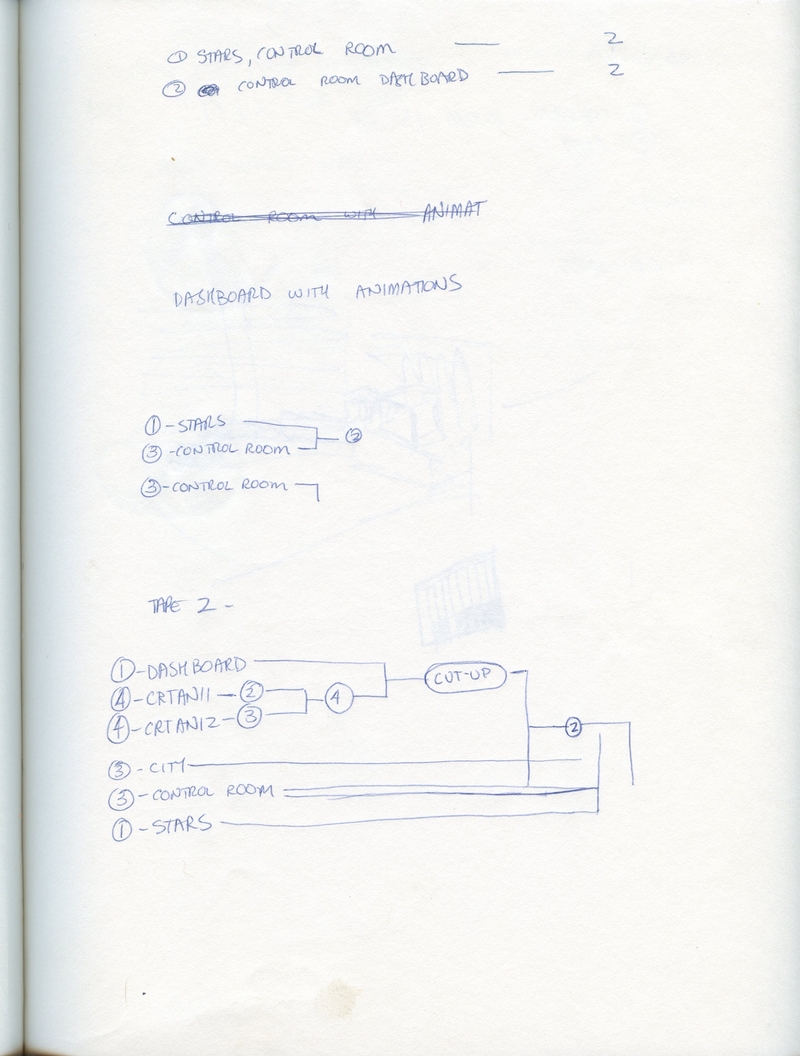 ① STARS, CONTROL ROOM — 2
② CONTROL ROOM DASHBOARD — 2
CONTROL ROOM WITH ANIMAT
DASHBOARD WITH ANIMATIONS
① - STARS
③ - CONTROL ROOM ②
③ - CONTROL ROOM
TAPE 2 -
① - DASHBOARD CUT-UP
④ - CRTANI1 - ② ④
④ - CRTANI2 - ③ ②
③ - CITY
③ - CONTROL ROOM
① - STARS